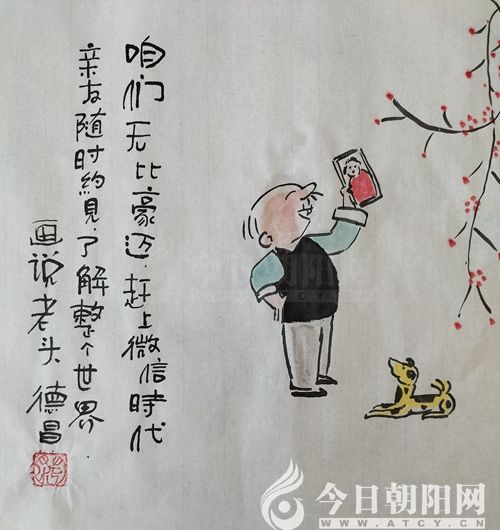 咱们无比豪迈.赶上微信時代
亲友随时約見.了解整个世界.
画说老头 德昌
今日朝阳网
WWW.ATCY.CN